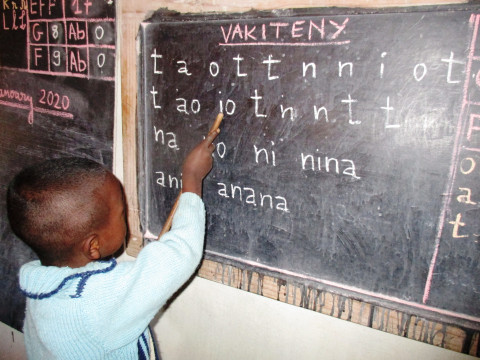 EFF 17
G 8 Ab 0
F 9 Ab 0
January 2020
VAKITENY
t a o t t n n i o t
t ao io t n n t t
na io ni nina
ani anana
o
a
t